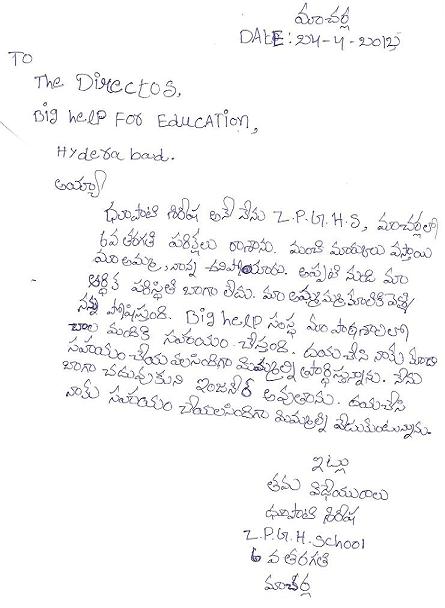 మాచర్ల
DATE : 24-4-2012
TO
The Directos,
Big help FOR EduCATION,
Hyderabad.
అయ్యా
ధూపాటి శిరీష అనే నేను Z.P.G.H.S, మాచర్లలో
6వ తరగతి పరిక్షలు రాశాను. మంచి మార్కులు వస్తాయి
మా అమ్మ, నాన్న చనిపోయారు. అప్పటి నుండి మా
ఆర్థిక పరిస్థితి బాగాలేదు. మా అమ్మమ్మ కూలికి వెళ్ళి
నన్ను పోషిస్తుంది. Big help సంస్థ మా పాఠశాలలో
చాల మందికి సహాయం చేస్తుంది. దయచేసి నాకు కూడా
సహాయం చేయవలసిందిగా మిమ్మల్ని ప్రార్థిస్తున్నాను. నేను
బాగా చదువుకుని ఇంజనీర్ అవుతాను. దయచేసి
నాకు సహాయం చేయలసిందిగా మిమ్మల్ని వేడుకుంటున్నాను.
ఇట్లు
తమ విధేయురాలు
ధూపాటి శిరీష
Z.P.G.H. School
6 వ తరగతి
మాచర్ల